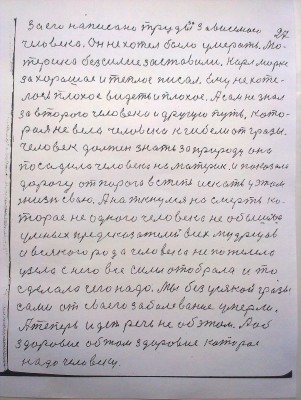 за его написано трудё зависимого 27.
человека. Он не хотел было умерать. Мо-
терика без силие заставили. Карл маркс
за хорошае и теплое писал. ему не хоте-
лось плохое видеть и плохое. А сам не знал
за второго человека и другую путь, кото-
рая не вела человека к гибели от грозы.
человек должен знать за природу она
посадила человека на материк, и показала
дорогу от порога в степь искать у этом
жизнь сваю. Она ткнулся на смерть ко-
торае не одного человека не
умных предсказателей всех мудрецов
и всякого рода человека не пожелело
узела с него все силы отобрала и то
сделала чего надо. Мы без усякой грозы
сами от сваего заболевание умерли.
А теперь идет речь не об этом. А об
здоровие об том здоровие которае
надо человеку.